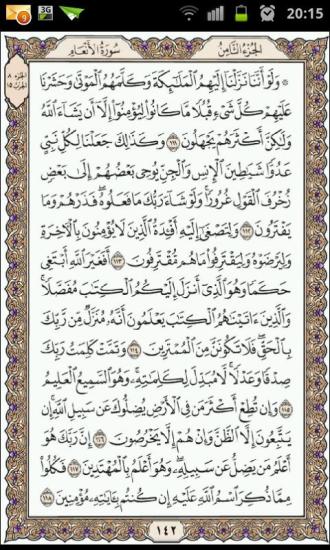 3G 20:15
سُورَةُ الأَنْعَامِ الجُزْءُ الثَّامِنُ
الجزء ٨
الحزب ١٥
۞ وَلَوْ أَنَّنَا نَزَّلْنَا إِلَيْهِمُ الْمَلَٰٓئِكَةَ وَكَلَّمَهُمُ الْمَوْتَىٰ وَحَشَرْنَا
عَلَيْهِمْ كُلَّ شَيْءٍ قُبُلًا مَّا كَانُوا لِيُؤْمِنُوٓا إِلَّآ أَن يَشَآءَ اللَّهُ
وَلَٰكِنَّ أَكْثَرَهُمْ يَجْهَلُونَ ١١١ وَكَذَٰلِكَ جَعَلْنَا لِكُلِّ نَبِيٍّ
عَدُوًّا شَيَٰطِينَ الْإِنسِ وَالْجِنِّ يُوحِي بَعْضُهُمْ إِلَىٰ بَعْضٍ
زُخْرُفَ الْقَوْلِ غُرُورًا ۚ وَلَوْ شَآءَ رَبُّكَ مَا فَعَلُوهُ ۖ فَذَرْهُمْ وَمَا
يَفْتَرُونَ ١١٢ وَلِتَصْغَىٰٓ إِلَيْهِ أَفْـِٔدَةُ الَّذِينَ لَا يُؤْمِنُونَ بِالْآخِرَةِ
وَلِيَرْضَوْهُ وَلِيَقْتَرِفُوا مَا هُم مُّقْتَرِفُونَ ١١٣ أَفَغَيْرَ اللَّهِ أَبْتَغِي
حَكَمًا وَهُوَ الَّذِيٓ أَنزَلَ إِلَيْكُمُ الْكِتَٰبَ مُفَصَّلًا ۚ
وَالَّذِينَ ءَاتَيْنَٰهُمُ الْكِتَٰبَ يَعْلَمُونَ أَنَّهُۥ مُنَزَّلٌ مِّن رَّبِّكَ
بِالْحَقِّ ۖ فَلَا تَكُونَنَّ مِنَ الْمُمْتَرِينَ ١١٤ وَتَمَّتْ كَلِمَتُ رَبِّكَ
صِدْقًا وَعَدْلًا ۚ لَّا مُبَدِّلَ لِكَلِمَٰتِهِۦ ۚ وَهُوَ السَّمِيعُ الْعَلِيمُ
١١٥ وَإِن تُطِعْ أَكْثَرَ مَن فِي الْأَرْضِ يُضِلُّوكَ عَن سَبِيلِ اللَّهِ ۚ إِن
يَتَّبِعُونَ إِلَّا الظَّنَّ وَإِنْ هُمْ إِلَّا يَخْرُصُونَ ١١٦ إِنَّ رَبَّكَ هُوَ
أَعْلَمُ مَن يَضِلُّ عَن سَبِيلِهِۦ ۖ وَهُوَ أَعْلَمُ بِالْمُهْتَدِينَ ١١٧ فَكُلُوا
مِمَّا ذُكِرَ اسْمُ اللَّهِ عَلَيْهِ إِن كُنتُم بِـَٔايَٰتِهِۦ مُؤْمِنِينَ ١١٨
١٤٢